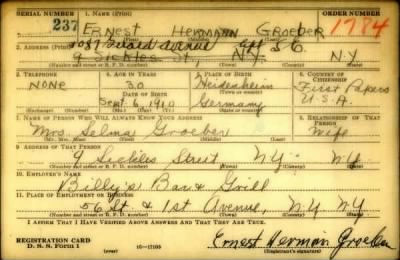 SERIAL NUMBER 1. NAME (Print) ORDER NUMBER
237 ERNEST HERMANN GROEBER 1784
2. ADDRESS (Print)
Avenue Apt
9 Sickles St, N.Y. N.Y
(Number and street or R. F. D. number) (Town) (County) (State)
3. TELEPHONE 4. AGE IN YEARS 5. PLACE OF BIRTH 6. COUNTRY OF CITIZENSHIP
NONE 30 Heidenheim First Papers
DATE OF BIRTH (Town or county)
Sept. 6, 1910 Germany U.S.A.
(Exchange) (Number) (Mo.) (Day) (Yr.) (State or country)
7. NAME OF PERSON WHO WILL ALWAYS KNOW YOUR ADDRESS 8. RELATIONSHIP OF THAT PERSON
Mrs. Selma Groeber Wife
(Mr., Mrs., Miss) (First) (Middle) (Last)
9. ADDRESS OF THAT PERSON
9 Sickles Street N.Y. N.Y.
(Number and street or R. F. D. number) (Town) (County) (State)
10. EMPLOYER'S NAME
Billy's Bar & Grill
11. PLACE OF EMPLOYMENT OR BUSINESS
56 St & 1st Avenue, N.Y N.Y
(Number and street or R. F. D. number) (Town) (County) (State)
I AFFIRM THAT I HAVE VERIFIED ABOVE ANSWERS AND THAT THEY ARE TRUE.
REGISTRATION CARD
D. S. S. Form 1 (over) 16-17105 Ernest Herman Groeber
(Registrant's signature)